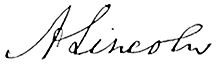 A Lincoln